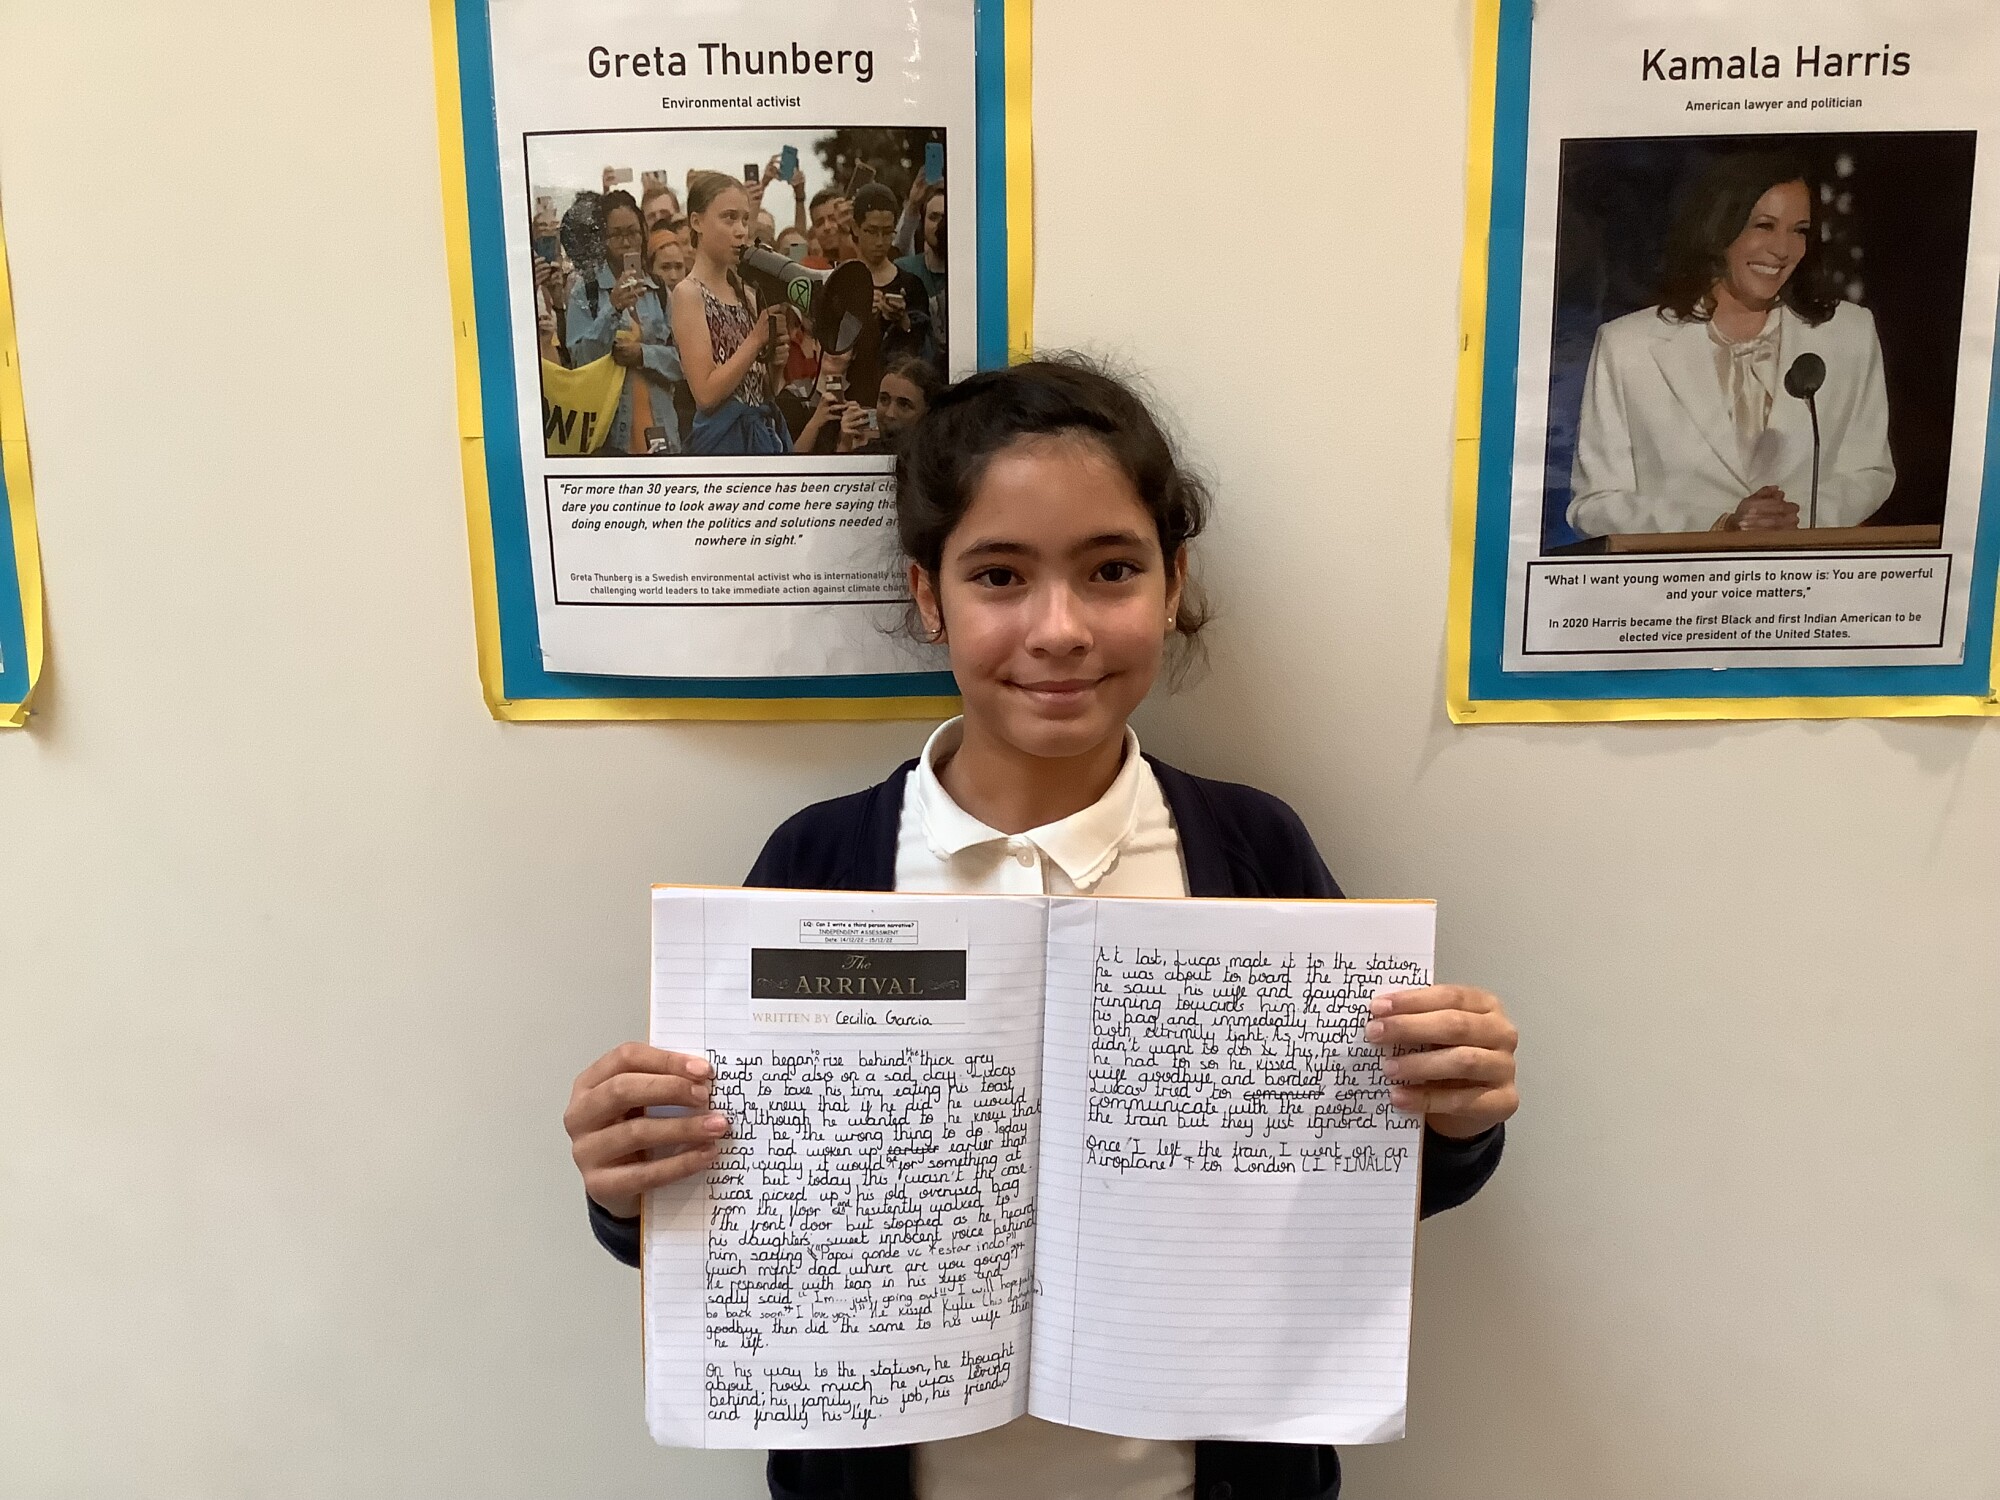 Greta Thunberg
Environmental activist
WE
"For more than 30 years, the science has been crystal cle
dare you continue to look away and come here saying tha
doing enough, when the politics and solutions needed ar
nowhere in sight."
Greta Thunberg is a Swedish environmental activist who is internationally kno
challenging world leaders to take immediate action against climate chang
Kamala Harris
American lawyer and politician
"What I want young women and girls to know is: You are powerful
and your voice matters,"
In 2020 Harris became the first Black and first Indian American to be
elected vice president of the United States.
LQ: Can I write a third person narrative?
INDEPENDENT ASSESSMENT
Date: 14/12/22 - 15/12/22
The
ARRIVAL
WRITTEN BY Cecilia Garcia
The sun began to rise behind the thick grey
louds and also on a sad day. Lucas
tried to take his time eating his toast
but he knew that if he did he would
Although he wanted to he knew that
ould be the wrong thing to do. Today
Lucas had woken up earlyer earlier than
usual, usualy it would be for something at
work but today this wasn't the case.
Lucas picked up his old, overused bag
from the floor and hesitently walked to
the front door but stopped as he heard
his daughters sweet innocent voice behind
him, saying "Papai aonde vc estar indo?"
(wich ment dad where are you going?)
He responded with tears in his eyes and
sadly said "Im... just going out!! I will hopefully
be back soon" "I love you!" He kissed Kylie (his daughter)
goodbye then did the same to his wife then
he left.
On his way to the station, he thought
about how much he was leving
behind; his family, his job, his friends
and finally his life.
At last, Lucas made it to the station,
he was about to board the train until
he saw his wife and daughter
running towards him. He drop
his bag and immedeatly hugge
both extrimily tight. As much
didn't want to do this, he knew that
he had to so he kissed Kylie and
wife goodbye and borded the train.
Lucas tried to communt comm
communicate with the people on
the train but they just ignored him
Once I left the train, I went on an
Airoplane to London (I FINALLY